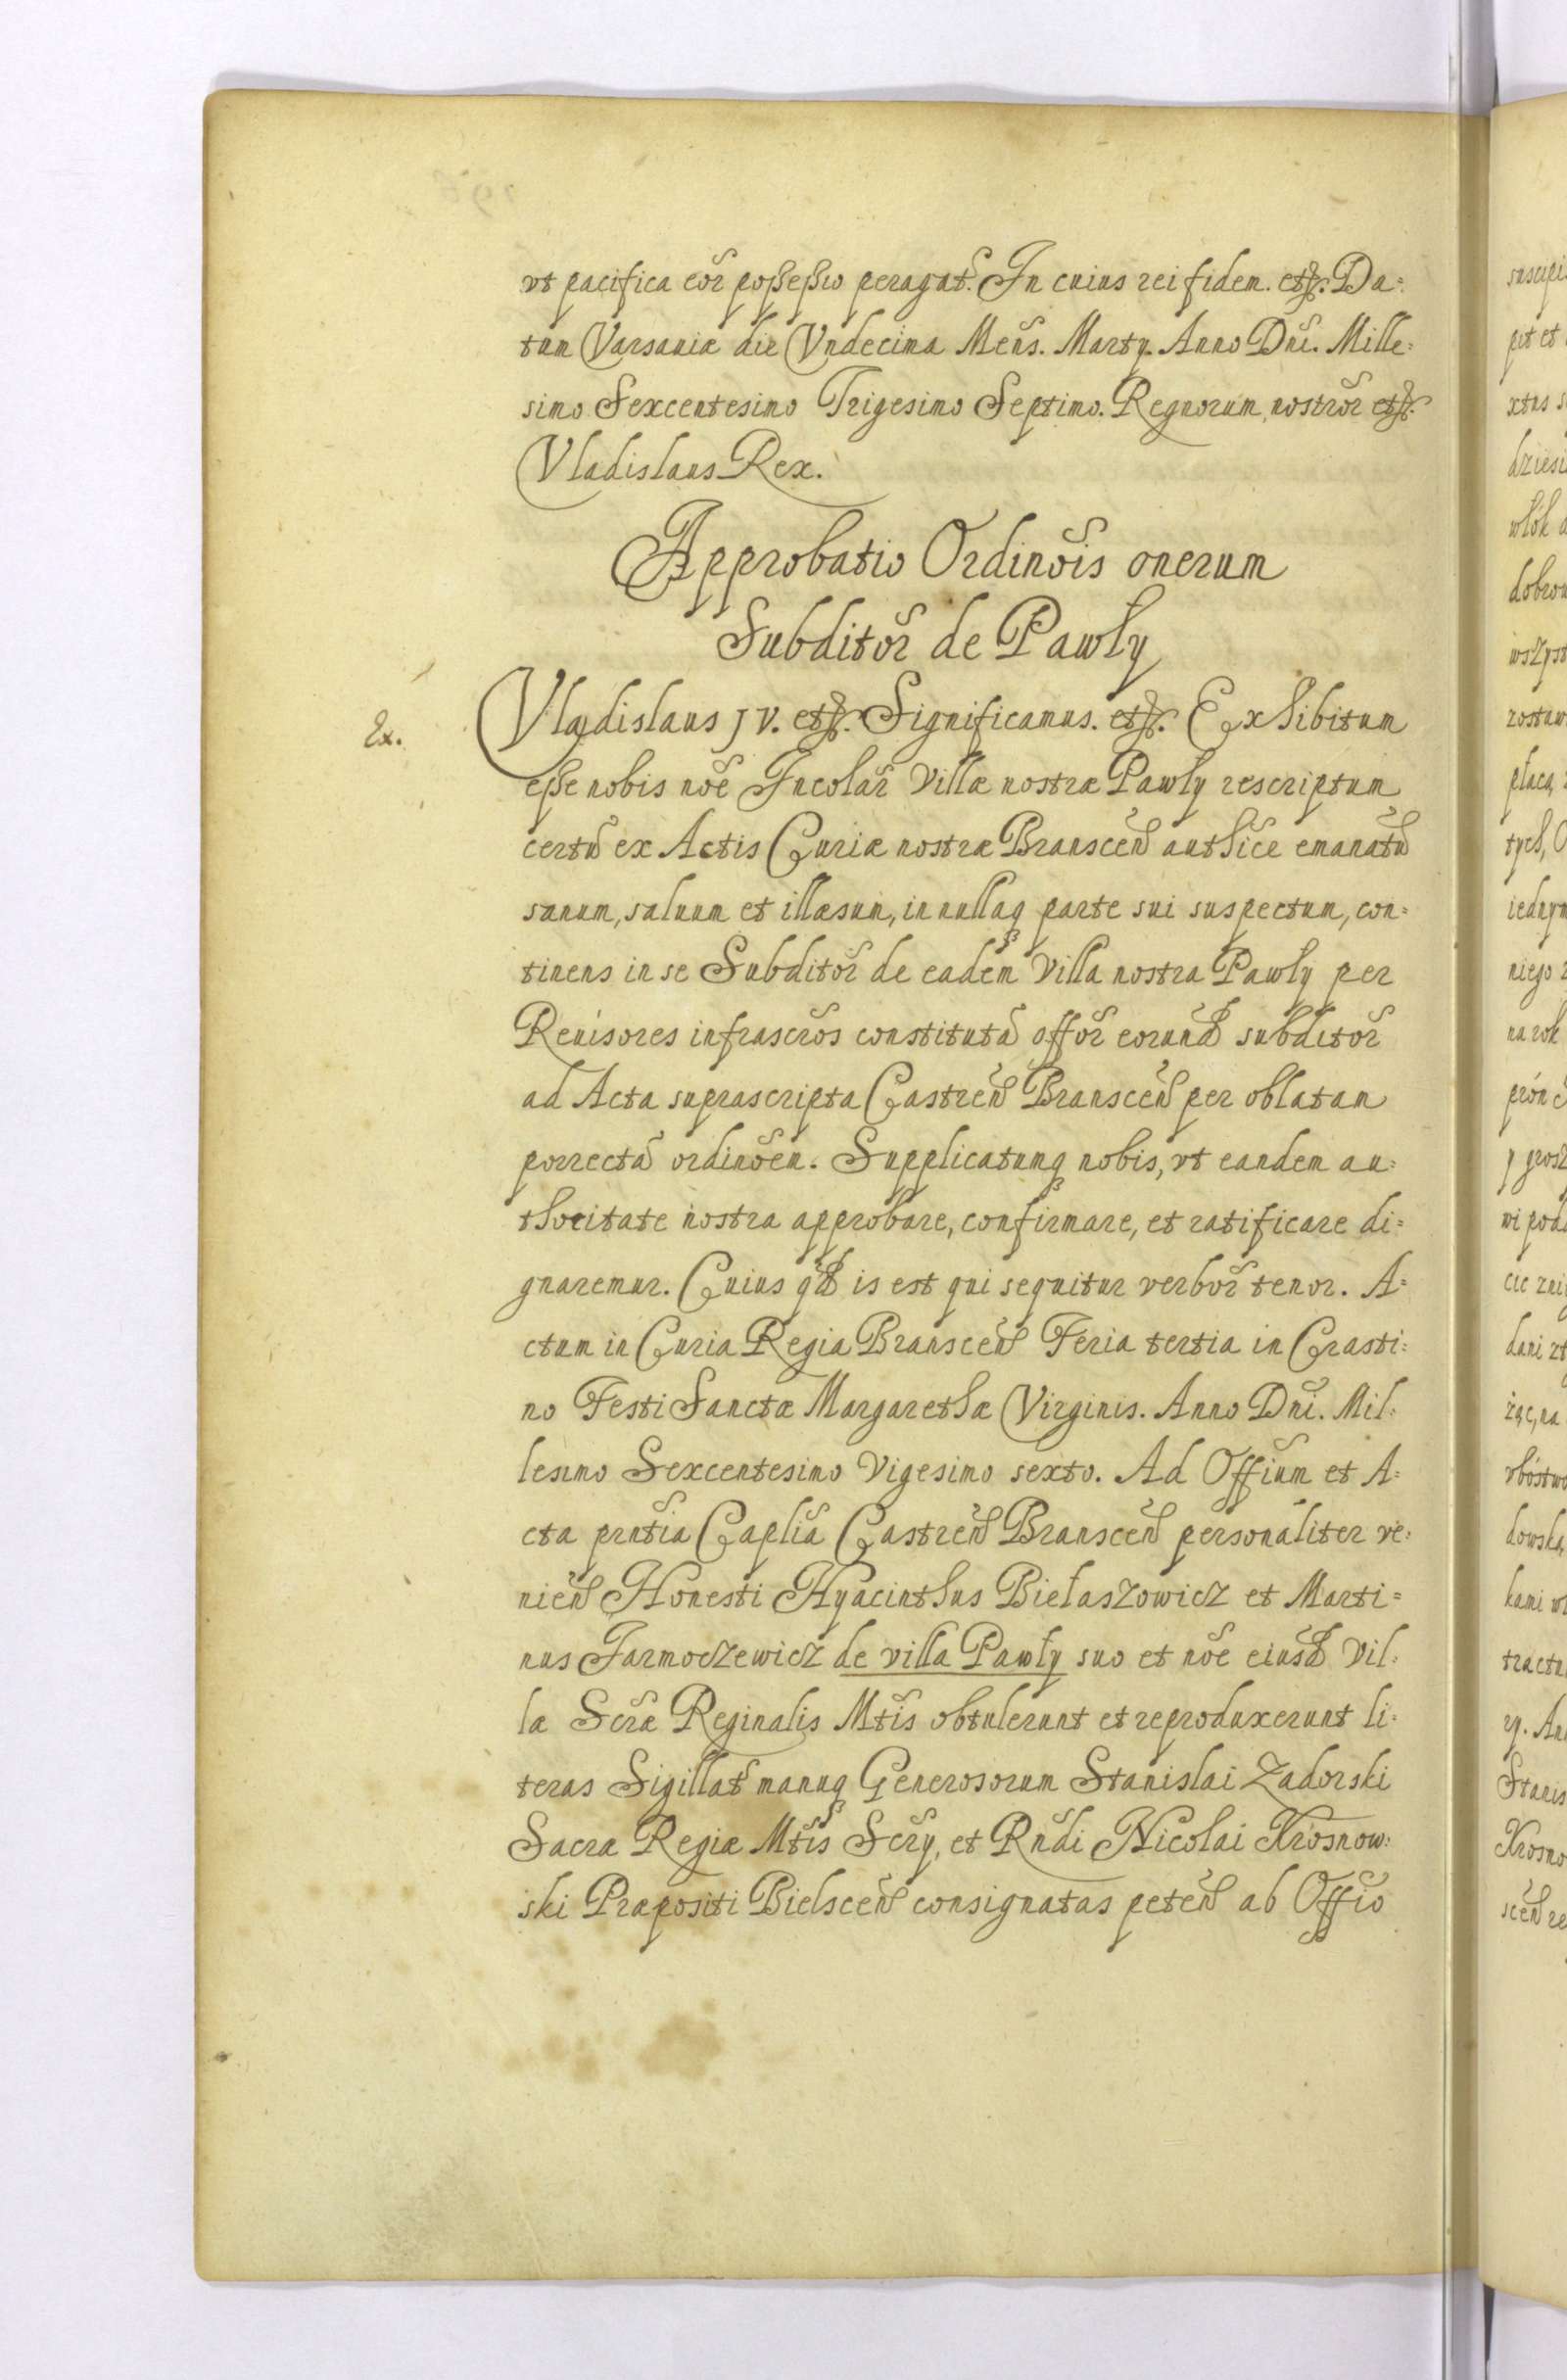 vt pacifica eor̃ poſseſsio peragat̃. In cuius rei fidem. etc. Da=
tum Varsauiæ die Vndecima Mens̃. Marty. Anno Dni̇̃. Mille=
simo Sexcentesimo Trigesimo Septimo. Regnorum nostror̃ etc.
Vladislaus Rex.
Approbatio Ordinõis onerum
Subditor̃ de Pawły
Ex.
Vladislaus JV. etc. Significamus. etc. Exhibitum
eſse nobis nõe Incolar̃ Villæ nostræ Pawły rescriptum
certũ ex Actis Curiæ nostræ Branscen̄ authĩce emanatũ
sanum, saluum et illæsum, in nullaq parte sui suspectum, con=
tinens in se Subditor̃ de eadem Villa nostra Pawły per
Reuisores infrascr̃os constitutã offor̃ eorund̃ subditor̃
ad Acta suprascripta Castren̄ Branscen̄ per oblatam
porrectã ordinõem. Supplicatumq nobis, vt eandem au=
thoritate nostra approbare, confirmare, et ratificare di=
gnaremur. Cuius qd̃ is est qui sequitur verbor̃ tenor. A=
ctum in Curia Regia Branscen̄ Feria tertia in Crasti=
no Festi Sanctæ Margarethæ Virginis. Anno Dnĩ. Mil=
lesimo Sexcentesimo Vigesimo sexto. Ad Offĩum et A=
cta prñtia Caplĩa Castren̄ Branscen̄ personaliter ve=
nien̄ Honesti Hyacinthus Bielaszowicz et Marti=
nus Jarmoczewicz de villa Pawły suo et nõe eiusd̃ Vil=
læ Scr̃æ Reginalis Mtis̃ obtulerunt et reproduxerunt li=
teras Sigillat̃ manuq Generosorum Stanislai Zadorski
Sacræ Regiæ Mtis̃ Scr̃y, et Rñdi Nicolai Krosnow=
ski Præpositi Bielscen̄ consignatas peten̄ ab Offĩo